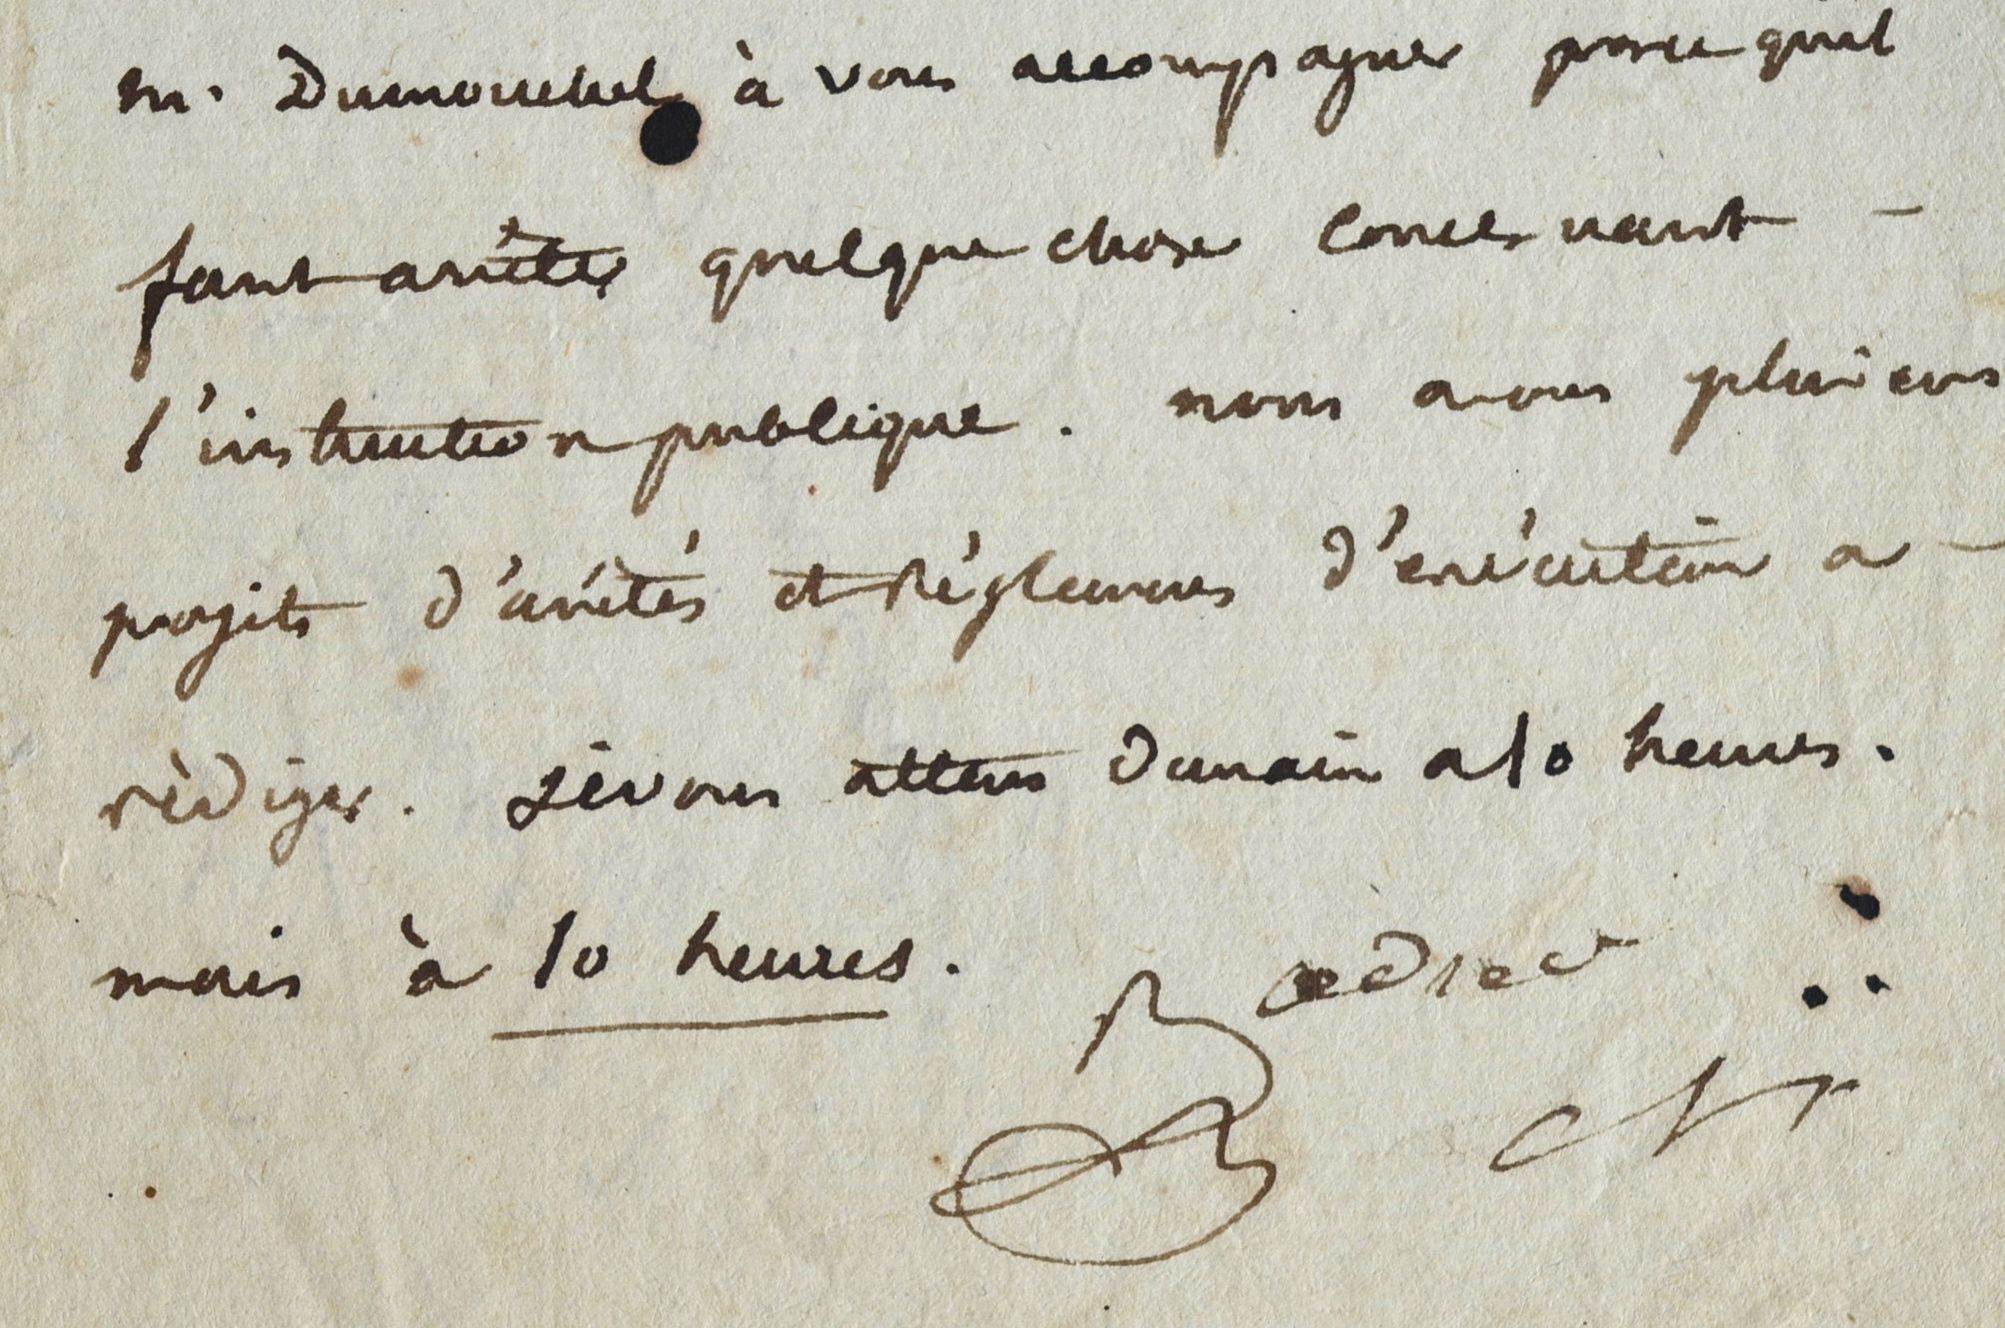 m. Dumouchel à vous accompagner parce quil
faut arrêter quelque chose concernant -
l'instruction publique. nous avons plusieurs
projets d'arrêtés et réglemens d'exécution a -
rèdiger. je vous attens demain a 10 heures.
mais à 10 heures.